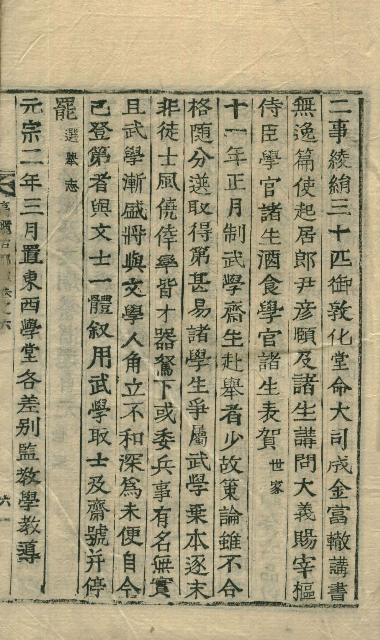 二事綾絹三十匹御敦化堂命大司成金富轍講書
無逸篇使起居郎尹彦頤及諸生講問大義賜宰樞
侍臣學官諸生酒食學官諸生表賀世家
十一年正月制武學齋生赴擧者少故策論雖不合
格随分選取得第甚易諸學生爭屬武學棄本逐末
非徒士風僥倖率皆才器駑下或委兵事有名無實
且武學漸盛將與文學人角立不和深爲未便自今
已登第者與文士一體叙用武學取士及齋號并停
罷選擧志
元宗二年三月置東西學堂各差別監敎學敎導
六